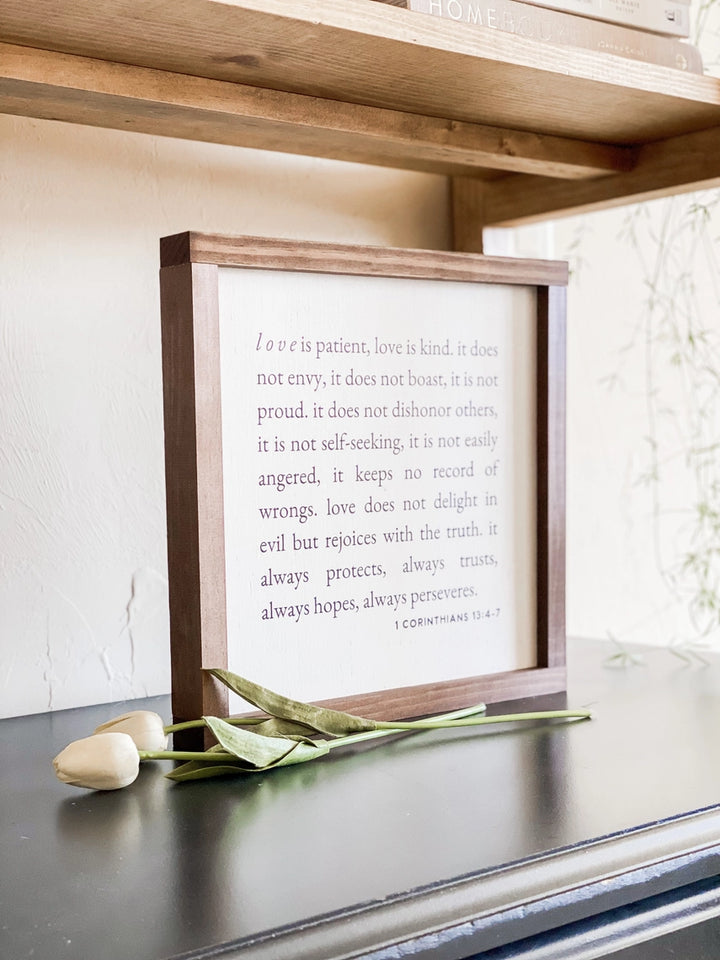 HOME BODY
love is patient, love is kind. it does
not envy, it does not boast, it is not
proud. it does not dishonor others,
it is not self-seeking, it is not easily
angered, it keeps no record of
wrongs. love does not delight in
evil but rejoices with the truth. it
always protects, always trusts,
always hopes, always perseveres.
1 CORINTHIANS 13:4-7